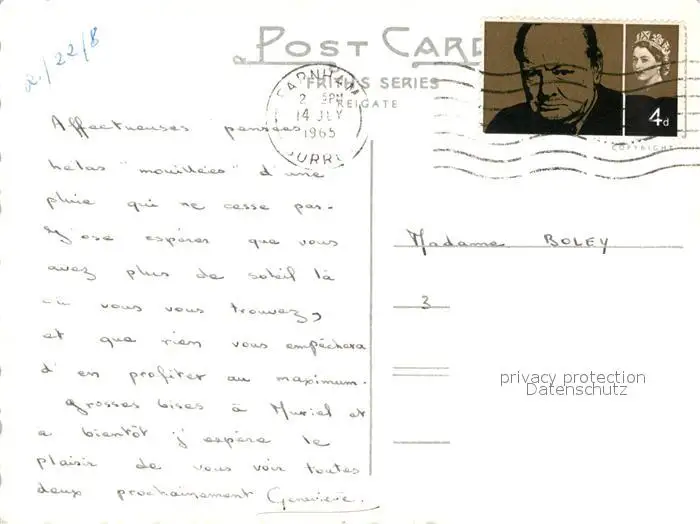 2/22/8
POST CARD
FRITH'S SERIES
REIGATE
FARNHAM
2 - PM
14 JLY
1965
SURREY
4d
COPYRIGHT
Affectueuses pensées
hélas "mouillées" d'une
pluie qui ne cesse pas.
J'ose espérer que vous
avez plus de soleil là
où vous vous trouvez,
et que rien vous empêchera
d'en profiter au maximum.
Grosses bises à Muriel et
a bientôt j'espère le
plaisir de vous voir toutes
deux prochainement Geneviève.
Madame BOLEY
3
privacy protection
Datenschutz